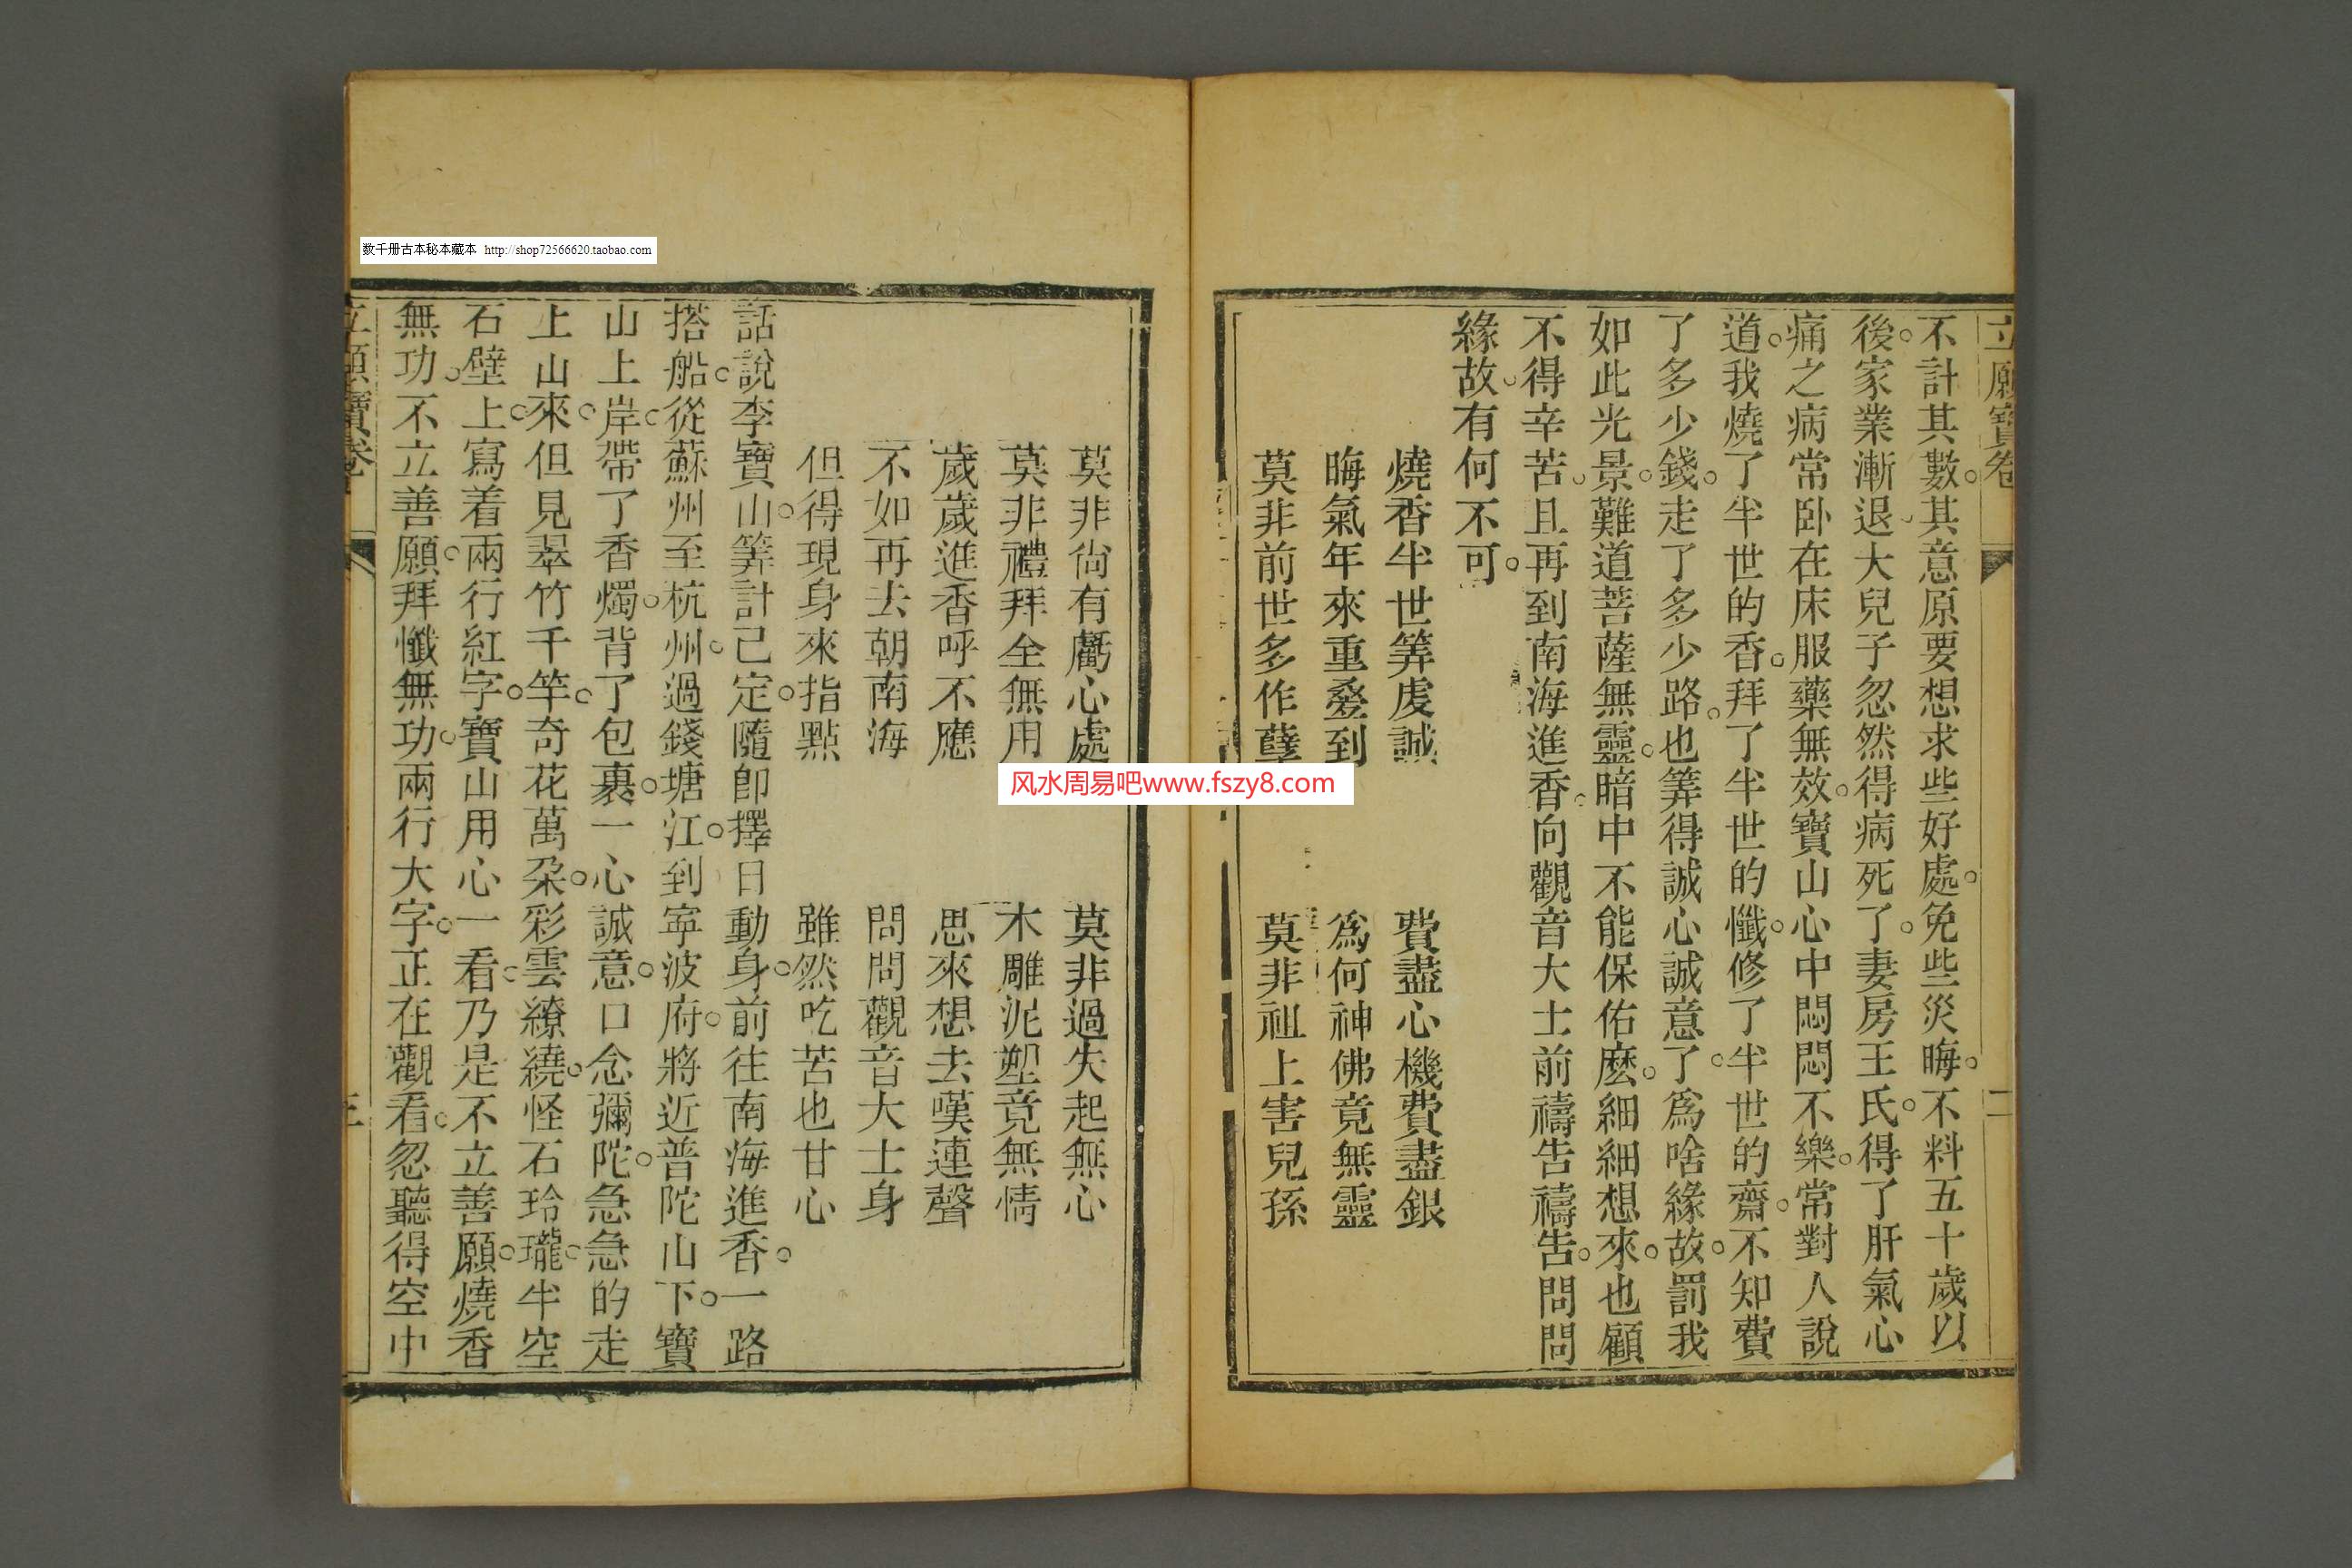 立願寶卷
二
不計其數。其意原要想求些好處。免些災晦。不料五十歲以
後。家業漸退。大兒子忽然得病死了。妻房王氏。得了肝氣心
痛之病常臥在床服藥無效。寶山心中悶悶不樂。常對人說
道。我燒了半世的香。拜了半世的懺。修了半世的齋。不知費
了多少錢。走了多少路。也筭得誠心誠意了。爲啥緣故。罰我
如此光景。難道菩薩無靈。暗中不能保佑麽。細細想來。也顧
不得辛苦。且再到南海進香。向觀音大士前禱告禱告。問問
緣故。有何不可。
燒香半世筭虔誠 費盡心機費盡銀
晦氣年來重疊到 爲何神佛竟無靈
莫非前世多作孽 莫非祖上害兒孫
莫非尙有虧心處 莫非過失起無心
莫非禮拜全無用 木雕泥塑竟無情
歲歲進香呼不應 思來想去嘆連聲
不如再去朝南海 問問觀音大士身
但得現身來指點 雖然吃苦也甘心
話說李寶山。筭計已定。隨卽擇日動身。前往南海進香。一路
搭船。從蘇州至杭州。過錢塘江。到寧波府。將近普陀山下。寶
山上岸。帶了香燭。背了包裹。一心誠意。口念彌陀。急急的走
上山來。但見翠竹千竿。奇花萬朶。彩雲繚繞。怪石玲瓏。半空
石壁上。寫着兩行紅字。寶山用心一看。乃是不立善願。燒香
無功。不立善願。拜懺無功。兩行大字。正在觀看。忽聽得空中
立願寶卷
三
数千册古本秘本藏本 http://shop72566620.taobao.com
风水周易吧www.fszy8.com